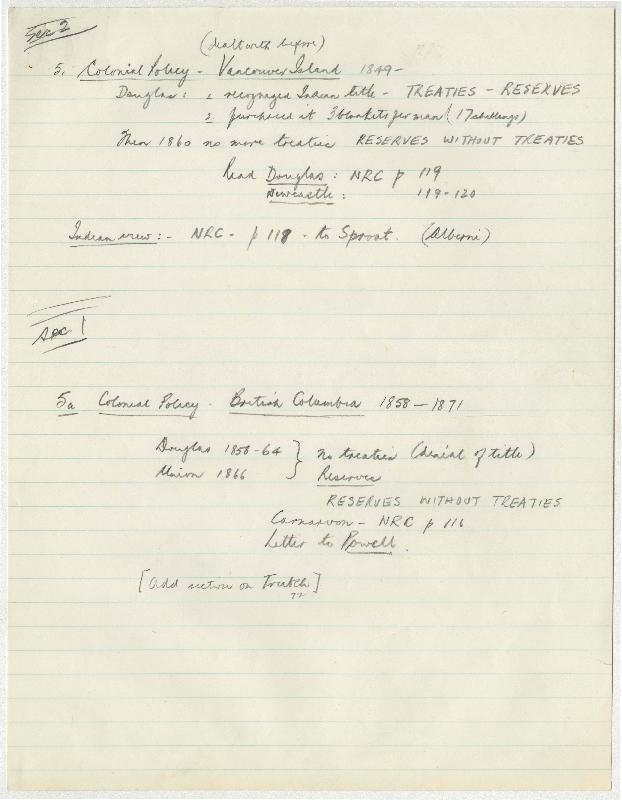 Sec 2
(dealt with before)
5. Colonial Policy - Vancouver Island 1849-
Douglas: 1. recognized Indian title - TREATIES - RESERVES
2. purchased it 3 blankets per man (17 shillings)
Then 1860 no more treaties RESERVES WITHOUT TREATIES
Read Douglas: NRC p 119
Newcastle: 119-120
Indian view:- NRC - p 118 - to Sproat. (Alberni)
Sec 1
5a Colonial Policy - British Columbia 1858-1871
Douglas 1858-64 } No treaties (denial of title)
Union 1866 Reserves
RESERVES WITHOUT TREATIES
Carnarvon - NRC p 116
Letter to Powell.
[Add section on Trutch]